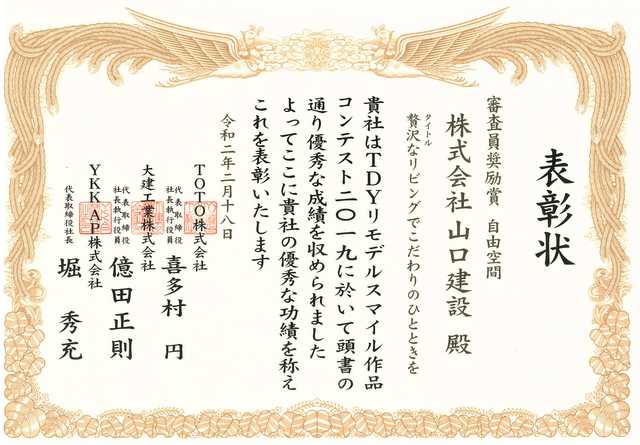 表彰状
審査員奨励賞 自由空間
株式会社 山口建設 殿
タイトル
贅沢なリビングでこだわりのひとときを
貴社はTDYリモデルスマイル作品
コンテスト二〇一九に於いて頭書の
通り優秀な成績を収められました
よってここに貴社の優秀な功績を称え
これを表彰いたします
令和二年二月十八日
TOTO株式会社
代表取締役
社長執行役員
喜多村 円
大建工業株式会社
代表取締役
社長執行役員
億田正則
YKK AP株式会社
代表取締役社長
堀 秀充